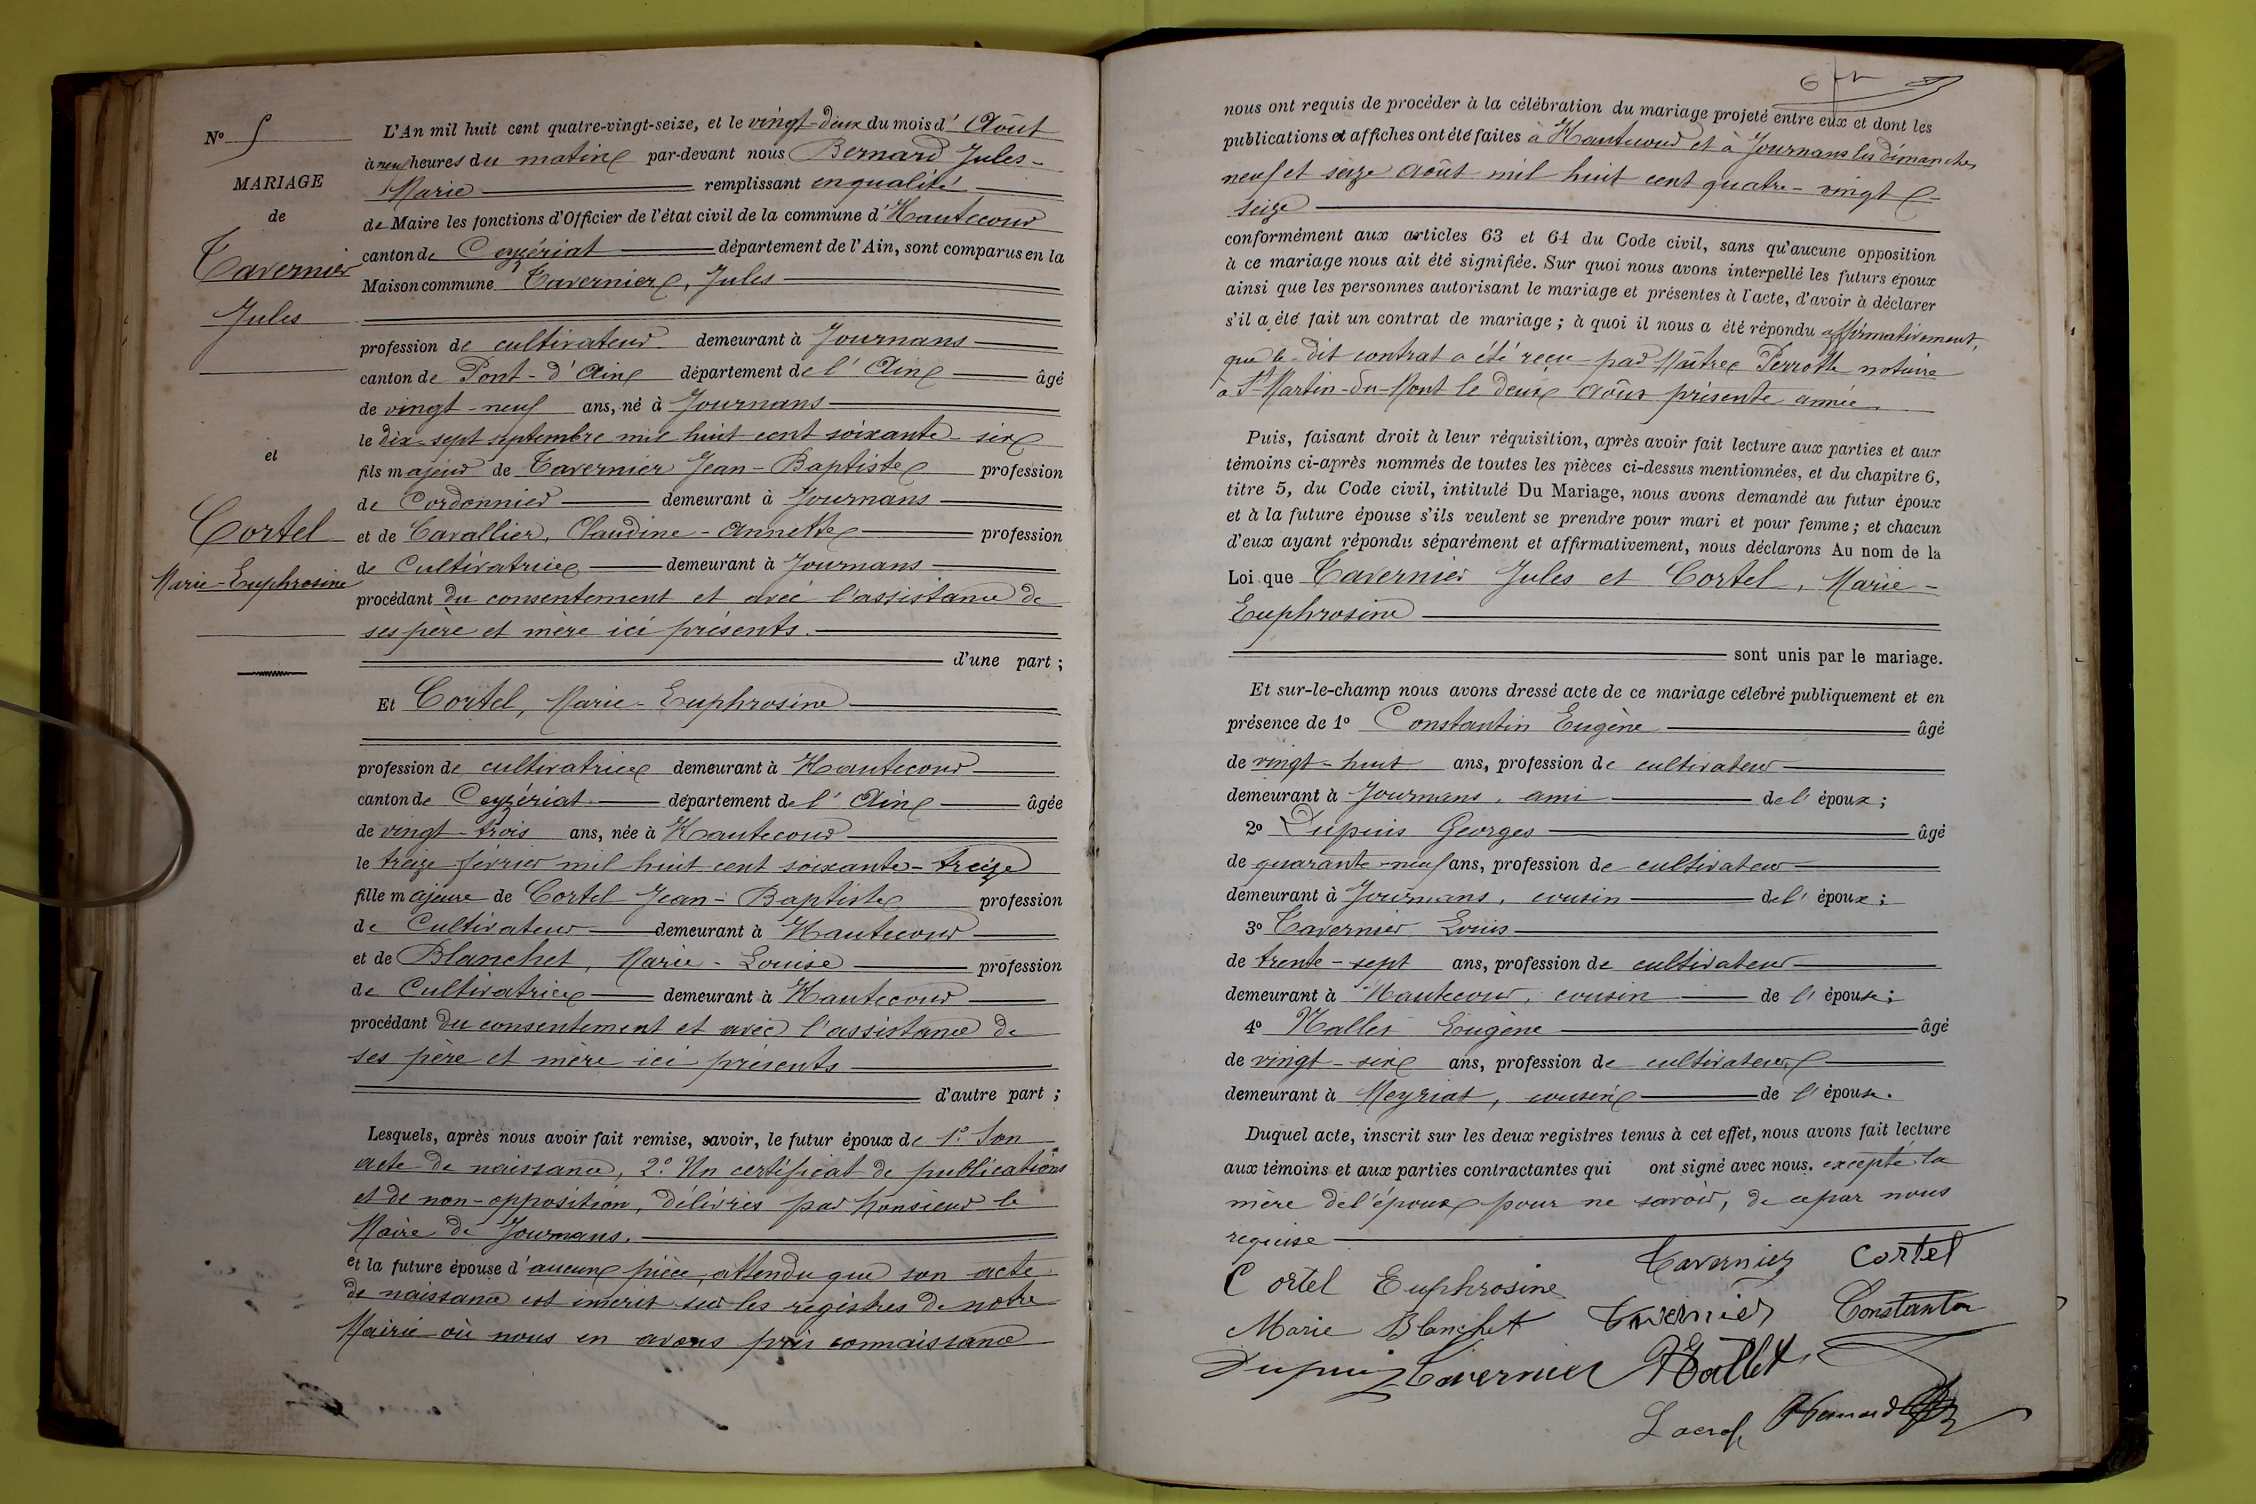 N° 5
MARIAGE
de
Tavernier
Jules
et
Cortel
Marie-Euphrosine
L'An mil huit cent quatre-vingt-seize, et le vingt-deux du mois d'Août
à neuf heures du matin par-devant nous Bernard Jules-
Marie remplissant en qualité
de Maire les fonctions d'Officier de l'état civil de la commune d'Hautecour
canton de Ceyzériat département de l'Ain, sont comparus en la
Maison commune Tavernier, Jules
profession de cultivateur demeurant à Journans
canton de Pont-d'Ain département de l'Ain âgé
de vingt-neuf ans, né à Journans
le dix-sept septembre mil huit cent soixante-six
fils majeur de Tavernier Jean-Baptiste profession
de Cordonnier demeurant à Journans
et de Cavallier, Claudine-Annette profession
de Cultivatrice demeurant à Journans
procédant du consentement et avec l'assistance de
ses père et mère ici présents.
d'une part ;
Et Cortel, Marie-Euphrosine
profession de cultivatrice demeurant à Hautecour
canton de Ceyzériat département de l'Ain âgée
de vingt-trois ans, née à Hautecour
le treize février mil huit cent soixante-treize
fille majeure de Cortel Jean-Baptiste profession
de Cultivateur demeurant à Hautecour
et de Blanchet, Marie-Louise profession
de Cultivatrice demeurant à Hautecour
procédant du consentement et avec l'assistance de
ses père et mère ici présents
d'autre part ;
Lesquels, après nous avoir fait remise, savoir, le futur époux de 1° Son
acte de naissance, 2° Un certificat de publications
et de non-opposition, délivrés par Monsieur le
Maire de Journans.
et la future épouse d'aucune pièce, attendu que son acte
de naissance est inscrit sur les registres de notre
Mairie où nous en avons pris connaissance
nous ont requis de procéder à la célébration du mariage projeté entre eux et dont les
publications et affiches ont été faites à Hautecour et à Journans les dimanches
neuf et seize août mil huit cent quatre-vingt-
seize
conformément aux articles 63 et 64 du Code civil, sans qu'aucune opposition
à ce mariage nous ait été signifiée. Sur quoi nous avons interpellé les futurs époux
ainsi que les personnes autorisant le mariage et présentes à l'acte, d'avoir à déclarer
s'il a été fait un contrat de mariage ; à quoi il nous a été répondu affirmativement,
que le dit contrat a été reçu par Maître Perrotte notaire
à St-Martin-du-Mont le deux Août présente année.
Puis, faisant droit à leur réquisition, après avoir fait lecture aux parties et aux
témoins ci-après nommés de toutes les pièces ci-dessus mentionnées, et du chapitre 6,
titre 5, du Code civil, intitulé Du Mariage, nous avons demandé au futur époux
et à la future épouse s'ils veulent se prendre pour mari et pour femme ; et chacun
d'eux ayant répondu séparément et affirmativement, nous déclarons Au nom de la
Loi que Tavernier Jules et Cortel, Marie-
Euphrosine
sont unis par le mariage.
Et sur-le-champ nous avons dressé acte de ce mariage célébré publiquement et en
présence de 1° Constantin Eugène âgé
de vingt-huit ans, profession de cultivateur
demeurant à Journans, ami de l'époux ;
2° Dupuis Georges âgé
de quarante-neuf ans, profession de cultivateur
demeurant à Journans, cousin de l'époux ;
3° Tavernier Louis
de trente-sept ans, profession de cultivateur
demeurant à Hautecour, cousin de l'épouse ;
4° Hallet Eugène âgé
de vingt-six ans, profession de cultivateur
demeurant à Meyriat, cousin de l'épouse.
Duquel acte, inscrit sur les deux registres tenus à cet effet, nous avons fait lecture
aux témoins et aux parties contractantes qui ont signé avec nous. excepté la
mère de l'époux pour ne savoir, de ce par nous
requise
Tavernier Cortel
Cortel Euphrosine
Marie Blanchet Tavernier Constantin
Dupuis Tavernier Hallet
Bernard